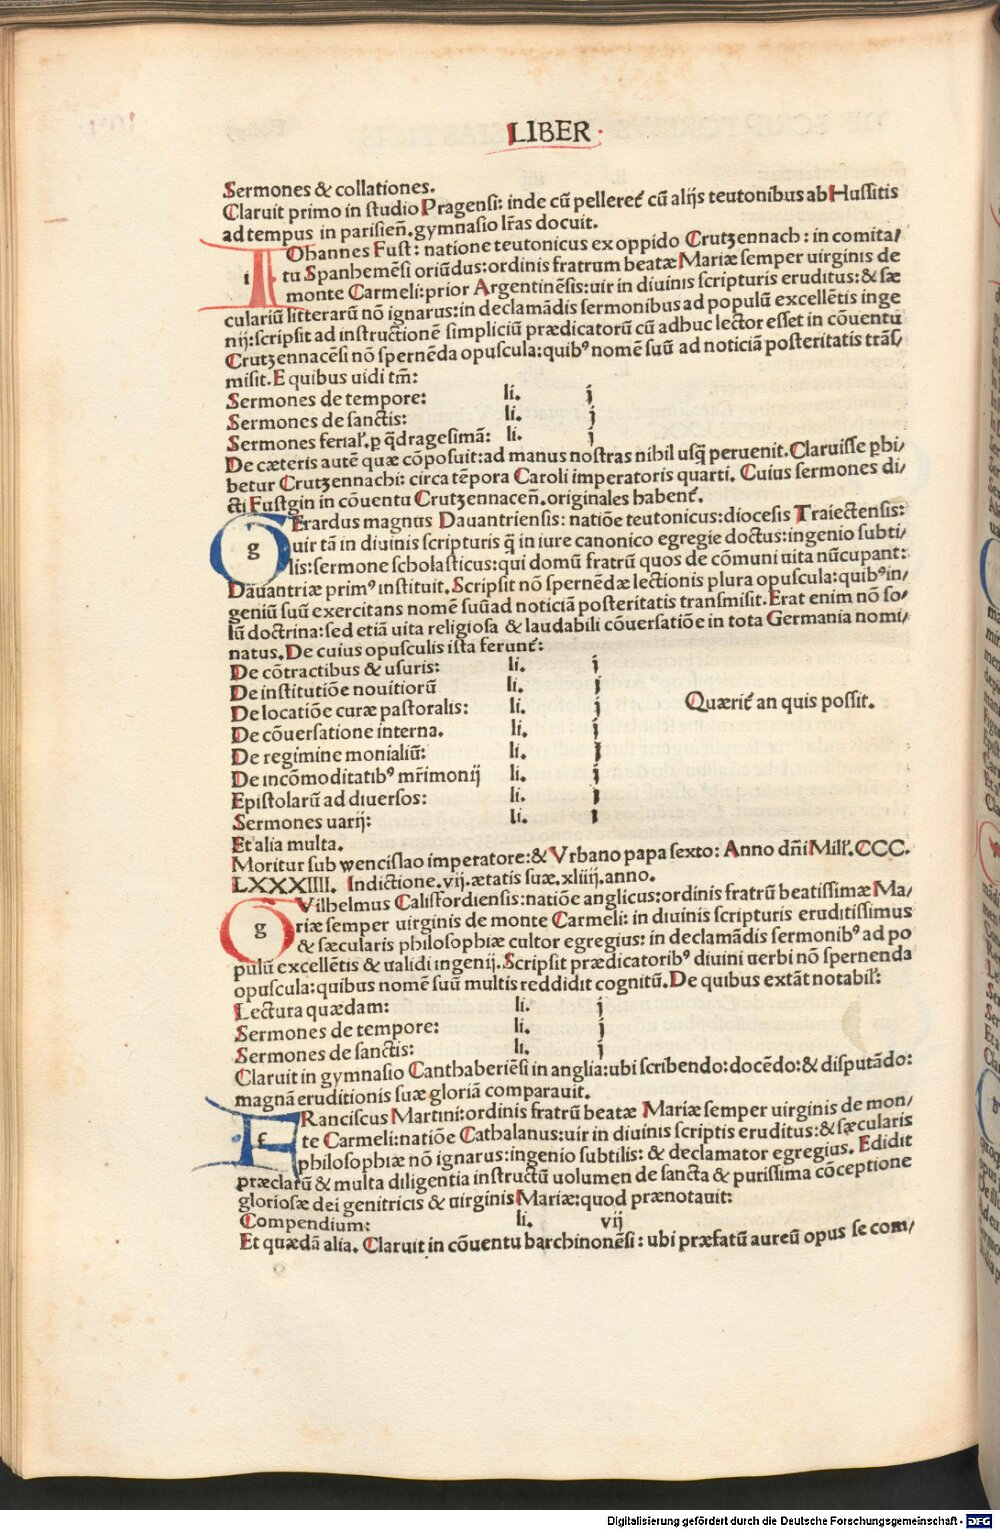 LIBER
Sermones & collationes.
Claruit primo in studio Pragensi: inde cũ pelleret᷑ cũ alijs teutonibus ab Hussitis
ad tempus in parisieñ. gymnasio lr̃as docuit.
IOhannes Fust: natione teutonicus ex oppido Crutzennach: in comita/
tu Spanhemẽsi oriũdus: ordinis fratrum beatæ Mariæ semper uirginis de
monte Carmeli: prior Argentinẽsis: uir in diuinis scripturis eruditus: & sæ
culariũ litterarũ nõ ignarus: in declamãdis sermonibus ad populũ excellẽtis inge
nij: scripsit ad instructionẽ simpliciũ prædicatorũ cũ adhuc lector esset in cõuentu
Crutzennacẽsi nõ spernẽda opuscula: quibꝰ nomẽ suũ ad noticiã posteritatis trãs/
misit. E quibus uidi tm̃:
Sermones de tempore: li. j
Sermones de sanctis: li. j
Sermones ferial'. ꝑ q̃dragesimã: li. j
De cæteris autẽ quæ cõposuit: ad manus nostras nihil usq̃ peruenit. Claruisse ꝑhi/
betur Crutzennachi: circa tẽpora Caroli imperatoris quarti. Cuius sermones di/
cti Fustgin in cõuentu Crutzennaceñ. originales habent᷑.
GErardus magnus Dauantriensis: natiõe teutonicus: diocesis Traiectensis:
uir tã in diuinis scripturis q̃ in iure canonico egregie doctus: ingenio subti/
lis: sermone scholasticus: qui domũ fratrũ quos de cõmuni uita nũcupant:
Dauantriæ primꝰ instituit. Scripsit nõ spernẽdæ lectionis plura opuscula: quibꝰ in/
geniũ suũ exercitans nomẽ suũ ad noticiã posteritatis transmisit. Erat enim nõ so/
lũ doctrina: sed etiã uita religiosa & laudabili cõuersatiõe in tota Germania nomi/
natus. De cuius opusculis ista ferunt᷑:
De cõtractibus & usuris: li. j
De institutiõe nouitiorũ li. j
De locatiõe curæ pastoralis: li. j Quærit᷑ an quis possit.
De cõuersatione interna. li. j
De regimine monialiũ: li. j
De incõmoditatibꝰ mr̃imonij li. j
Epistolarũ ad diuersos: li. j
Sermones uarij: li. j
Et alia multa.
Moritur sub wencislao imperatore: & Vrbano papa sexto: Anno dñi Mill'. CCC.
LXXXIIII. Indictione. vij. ætatis suæ. xliiij. anno.
gVilhelmus Calisfordiensis: natiõe anglicus: ordinis fratrũ beatissimæ Ma/
riæ semper uirginis de monte Carmeli: in diuinis scripturis eruditissimus
& sæcularis philosophiæ cultor egregius: in declamãdis sermonibꝰ ad po
pulũ excellẽtis & ualidi ingenij. Scripsit prædicatoribꝰ diuini uerbi nõ spernenda
opuscula: quibus nomẽ suũ multis reddidit cognitũ. De quibus extãt notabil':
Lectura quædam: li. j
Sermones de tempore: li. j
Sermones de sanctis: li. j
Claruit in gymnasio Canthaberiẽsi in anglia: ubi scribendo: docẽdo: & disputãdo:
magnã eruditionis suæ gloriã comparauit.
FRanciscus Martini: ordinis fratrũ beatæ Mariæ semper uirginis de mon/
te Carmeli: natiõe Cathalanus: uir in diuinis scriptis eruditus: & sæcularis
philosophiæ nõ ignarus: ingenio subtilis: & declamator egregius. Edidit
præclarũ & multa diligentia instructũ uolumen de sancta & purissima cõceptione
gloriosæ dei genitricis & uirginis Mariæ: quod prænotauit:
Compendium: li. vij
Et quædã alia. Claruit in cõuentu barchinonẽsi: ubi præfatũ aureũ opus se com/
Digitalisierung gefördert durch die Deutsche Forschungsgemeinschaft - DFG